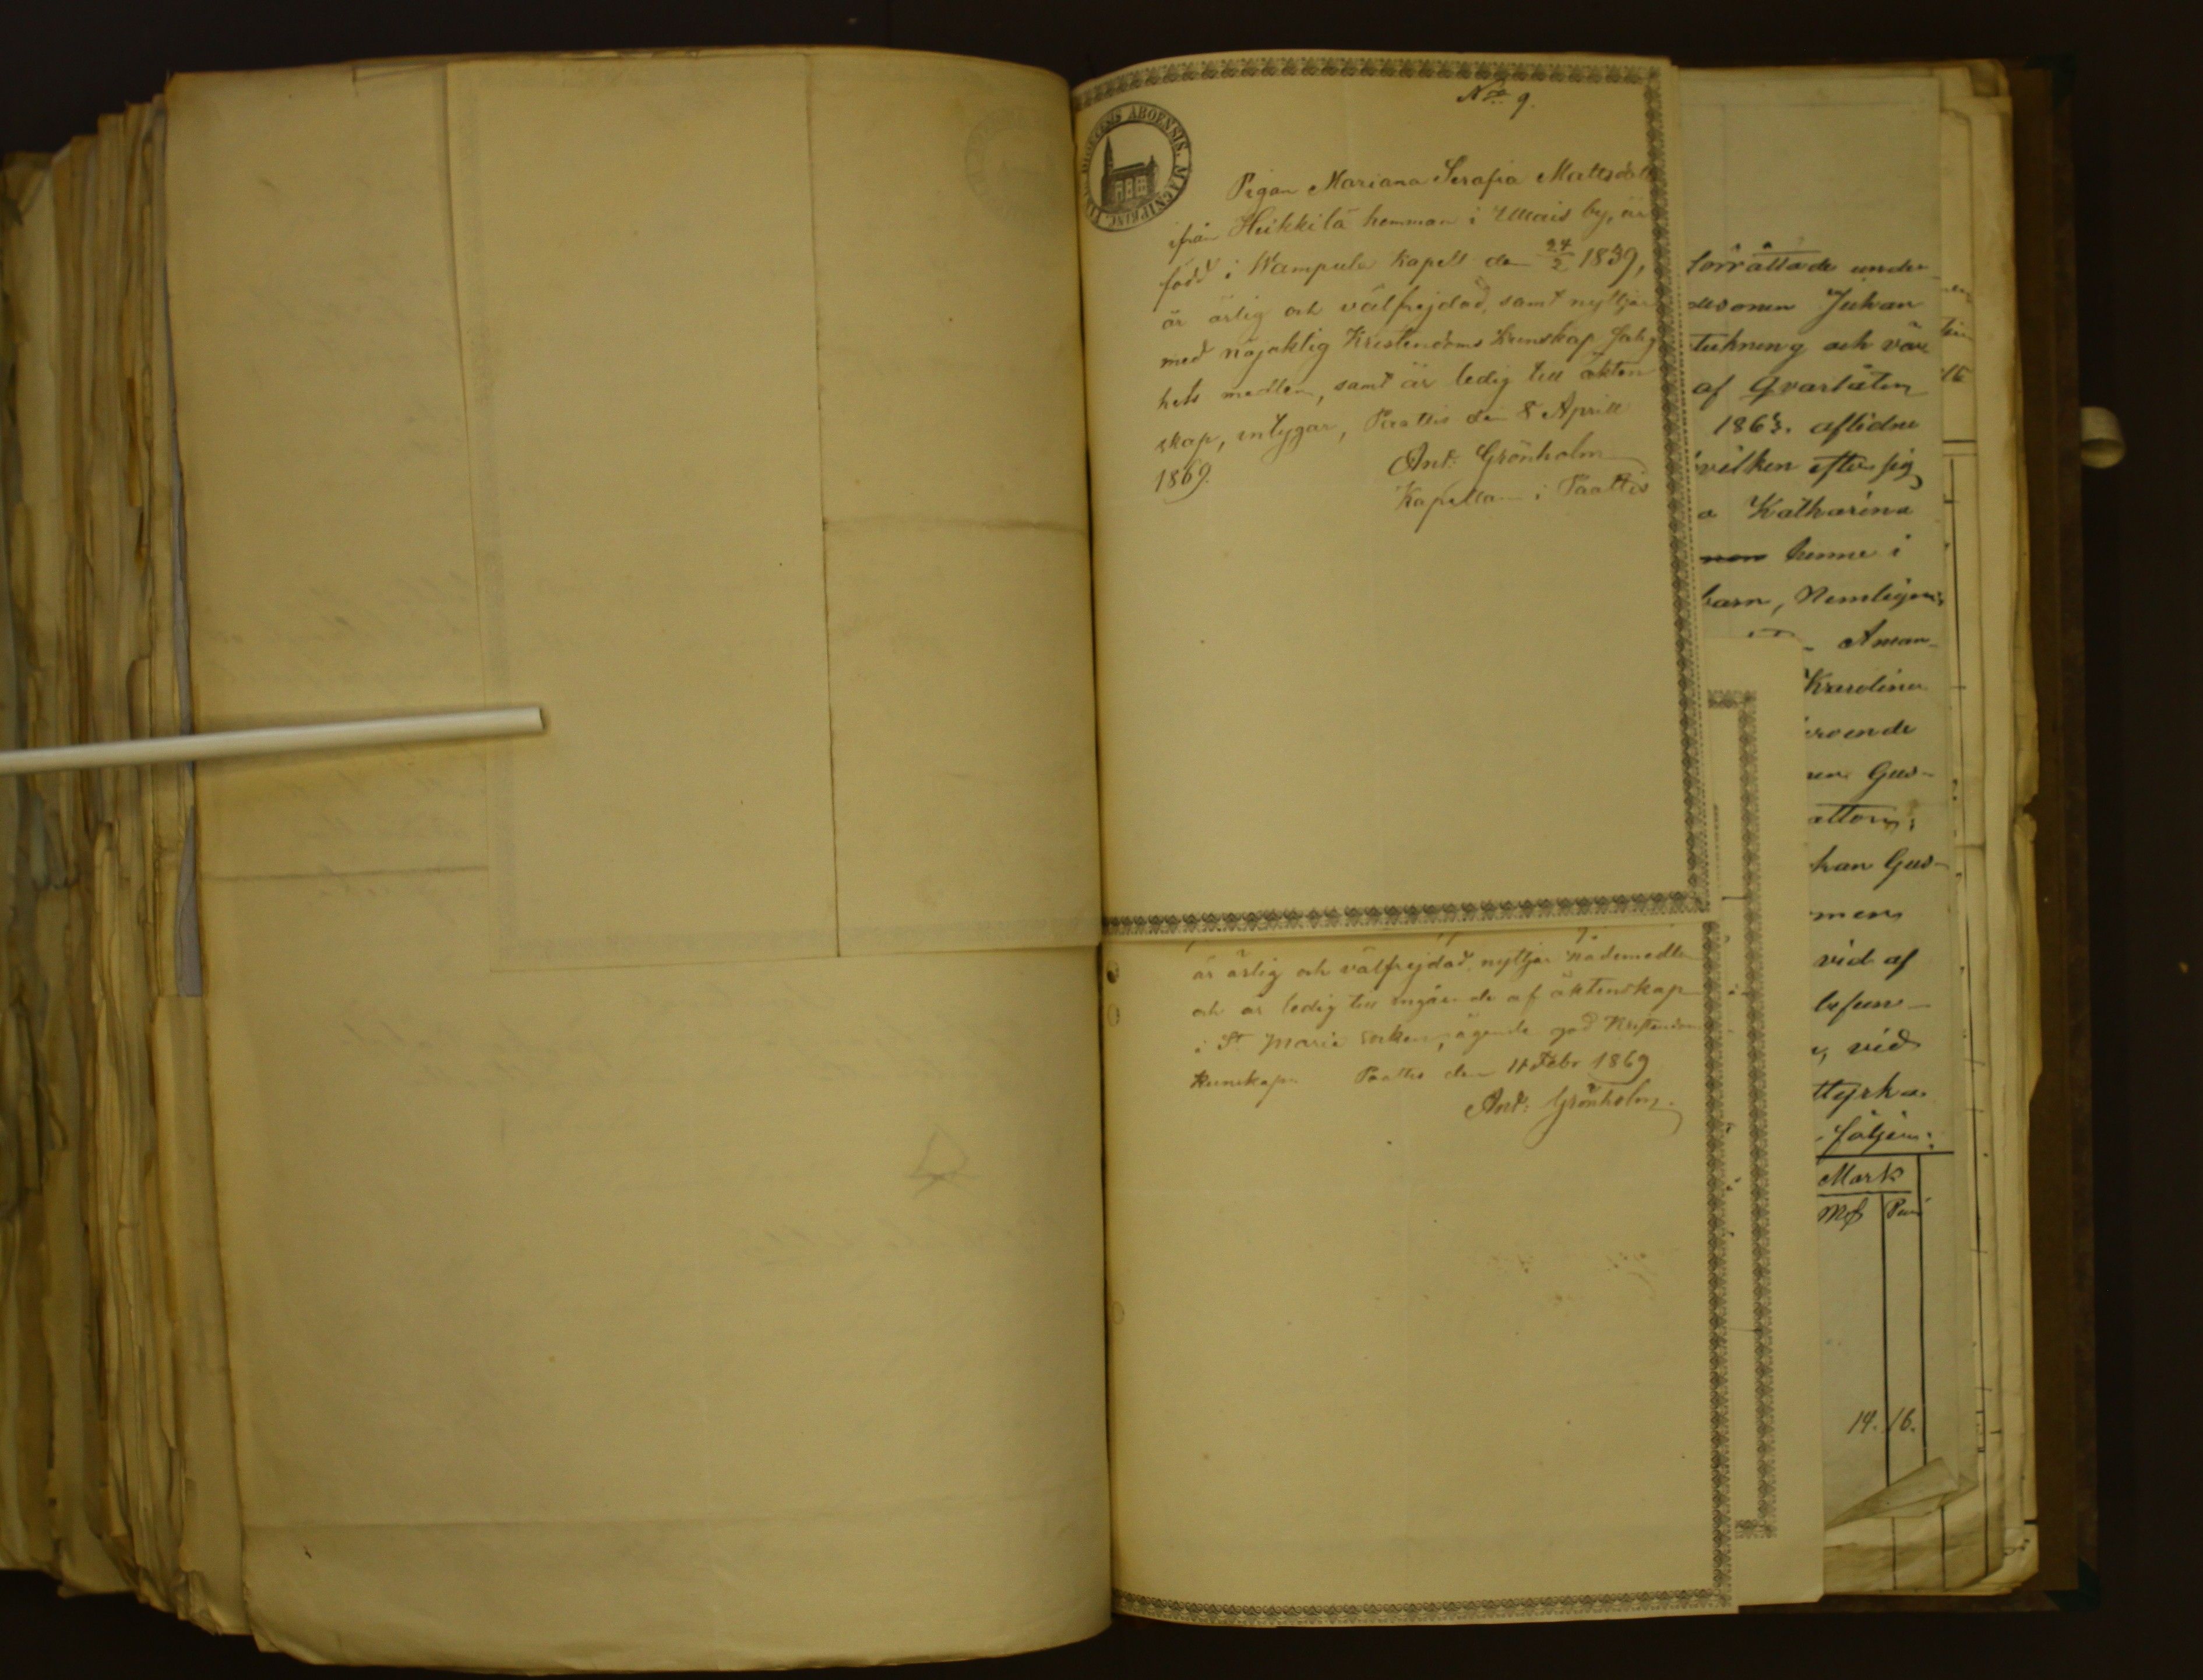 No 9.
Pigan Mariana Serafia Mattsdott
ifrån Heikkilä hemman i Ylläis by, är
född i Wampula Kapell den 24/2 1839,
är ärlig och välfrejdad, samt nyttjar
med nöjaktig Kristendoms Kunskap salig
hets medlen, samt är ledig till äkten
skap, intygar, Paattis den 8 Aprill
1869.
Ant: Grönholm
Kapellan i Paattis
är ärlig och välfrejdad, nyttjar nådemedlen
och är ledig till ingående af äktenskap
i St Marie socken, ägende god Kristendoms
Kunskap. Paattis den 11 Febr 1869
Ant: Grönholm.
förrättade under
usonen Juhan
teckning och vär
af Qvarlåten
1863. aflidne
hvilken efter sig
a Katharina
henne i
barn, Nemligen:
Aman-
Karolina
roende
Gus-
attorn;
han Gus-
men
vid af
befun-
, vid
styrka
följer:
Mark
Mk Pen
14. 16.
DIOECESIS ABOENSIS.